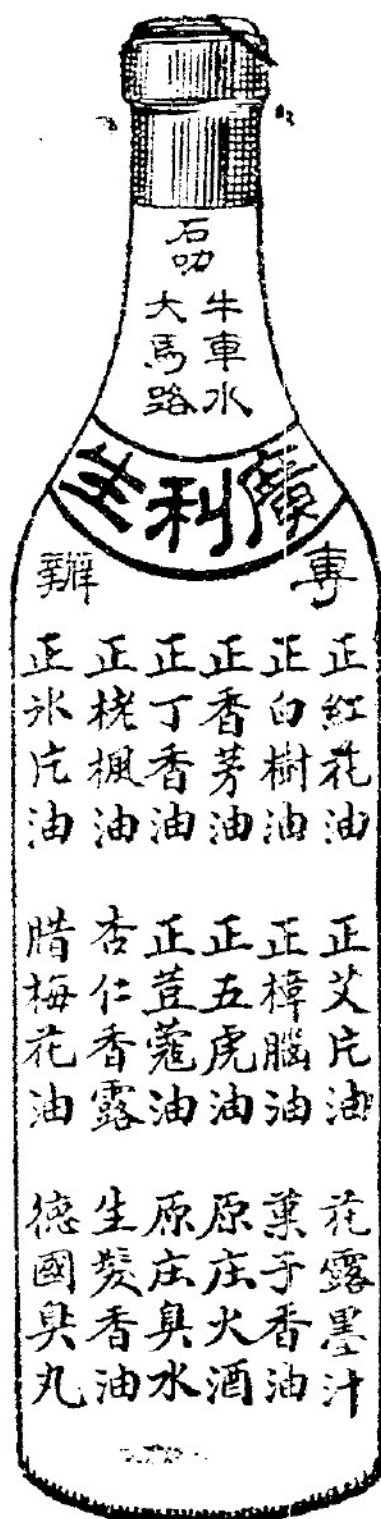 石叻
牛車水
大馬路
廣利生
專辦
正紅花油
正白樹油
正香茅油
正丁香油
正桃楓油
正氷片油
正艾片油
正樟腦油
正五虎油
正荳蔻油
杏仁香露
腊梅花油
花露墨汁
菓子香油
原庄火酒
原庄臭水
生髮香油
德國臭丸